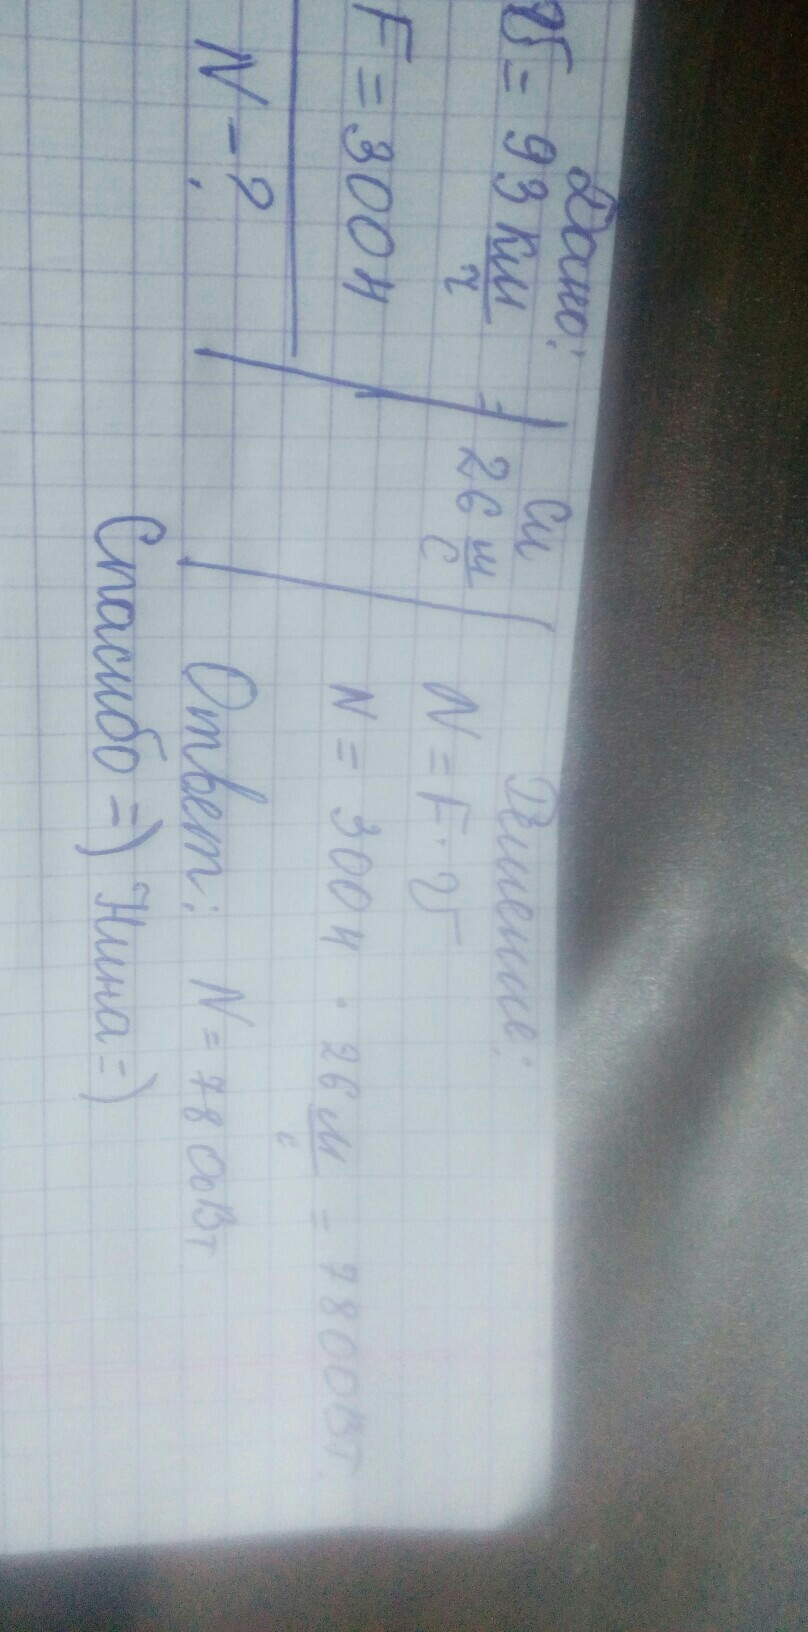 Дано:
V = 93 км/ч
F = 300 Н
N - ?
Си
26 м/с
Решение:
N = F · V
N = 300 Н · 26 м/с = 7800 Вт
Ответ: N = 7800 Вт
Спасибо =) Нина =)